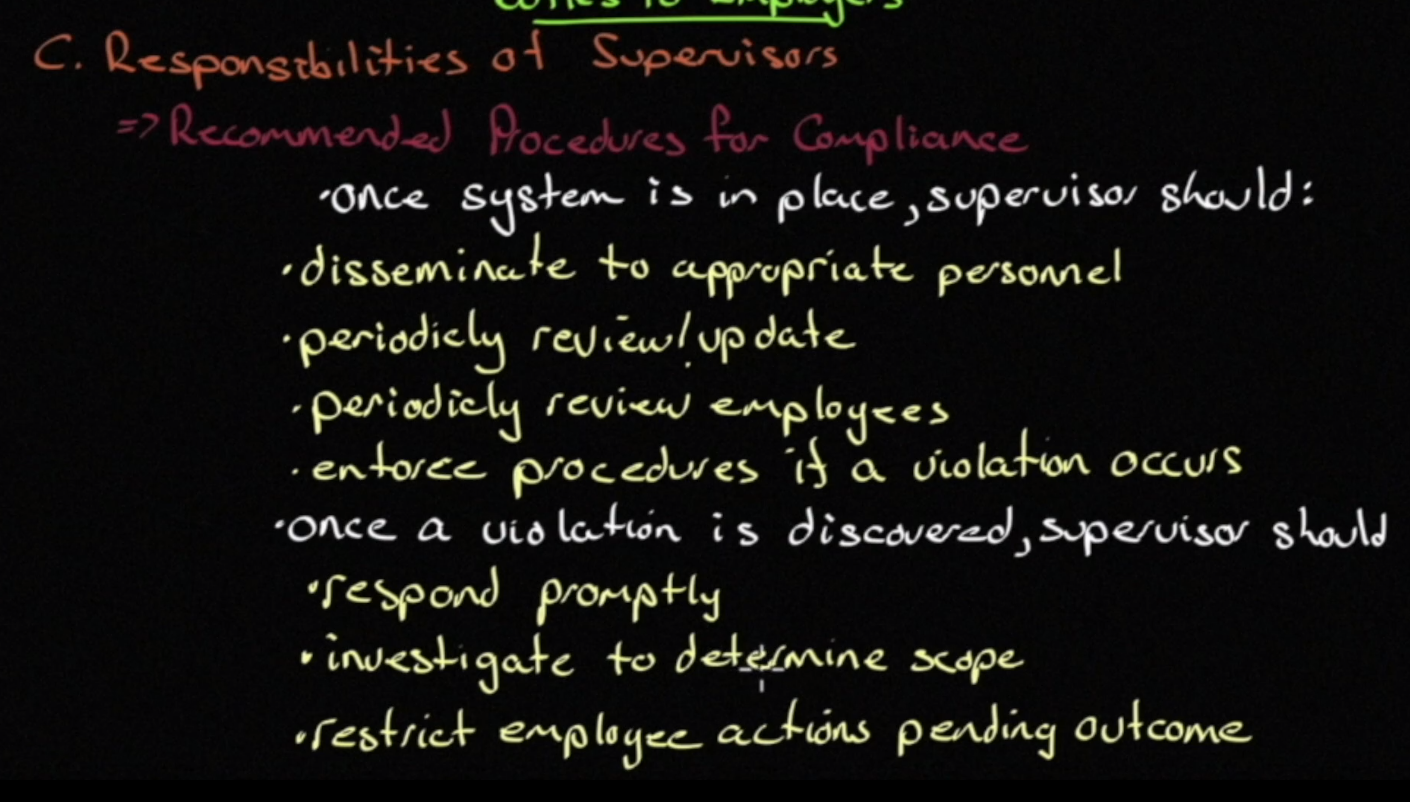 Duties to Employers
C. Responsibilities of Supervisors
=> Recommended Procedures for Compliance
·once system is in place, supervisor should:
·disseminate to appropriate personnel
·periodicly review/update
·periodicly review employees
·enforce procedures if a violation occurs
·once a violation is discovered, supervisor should
·respond promptly
·investigate to determine scope
·restrict employee actions pending outcome